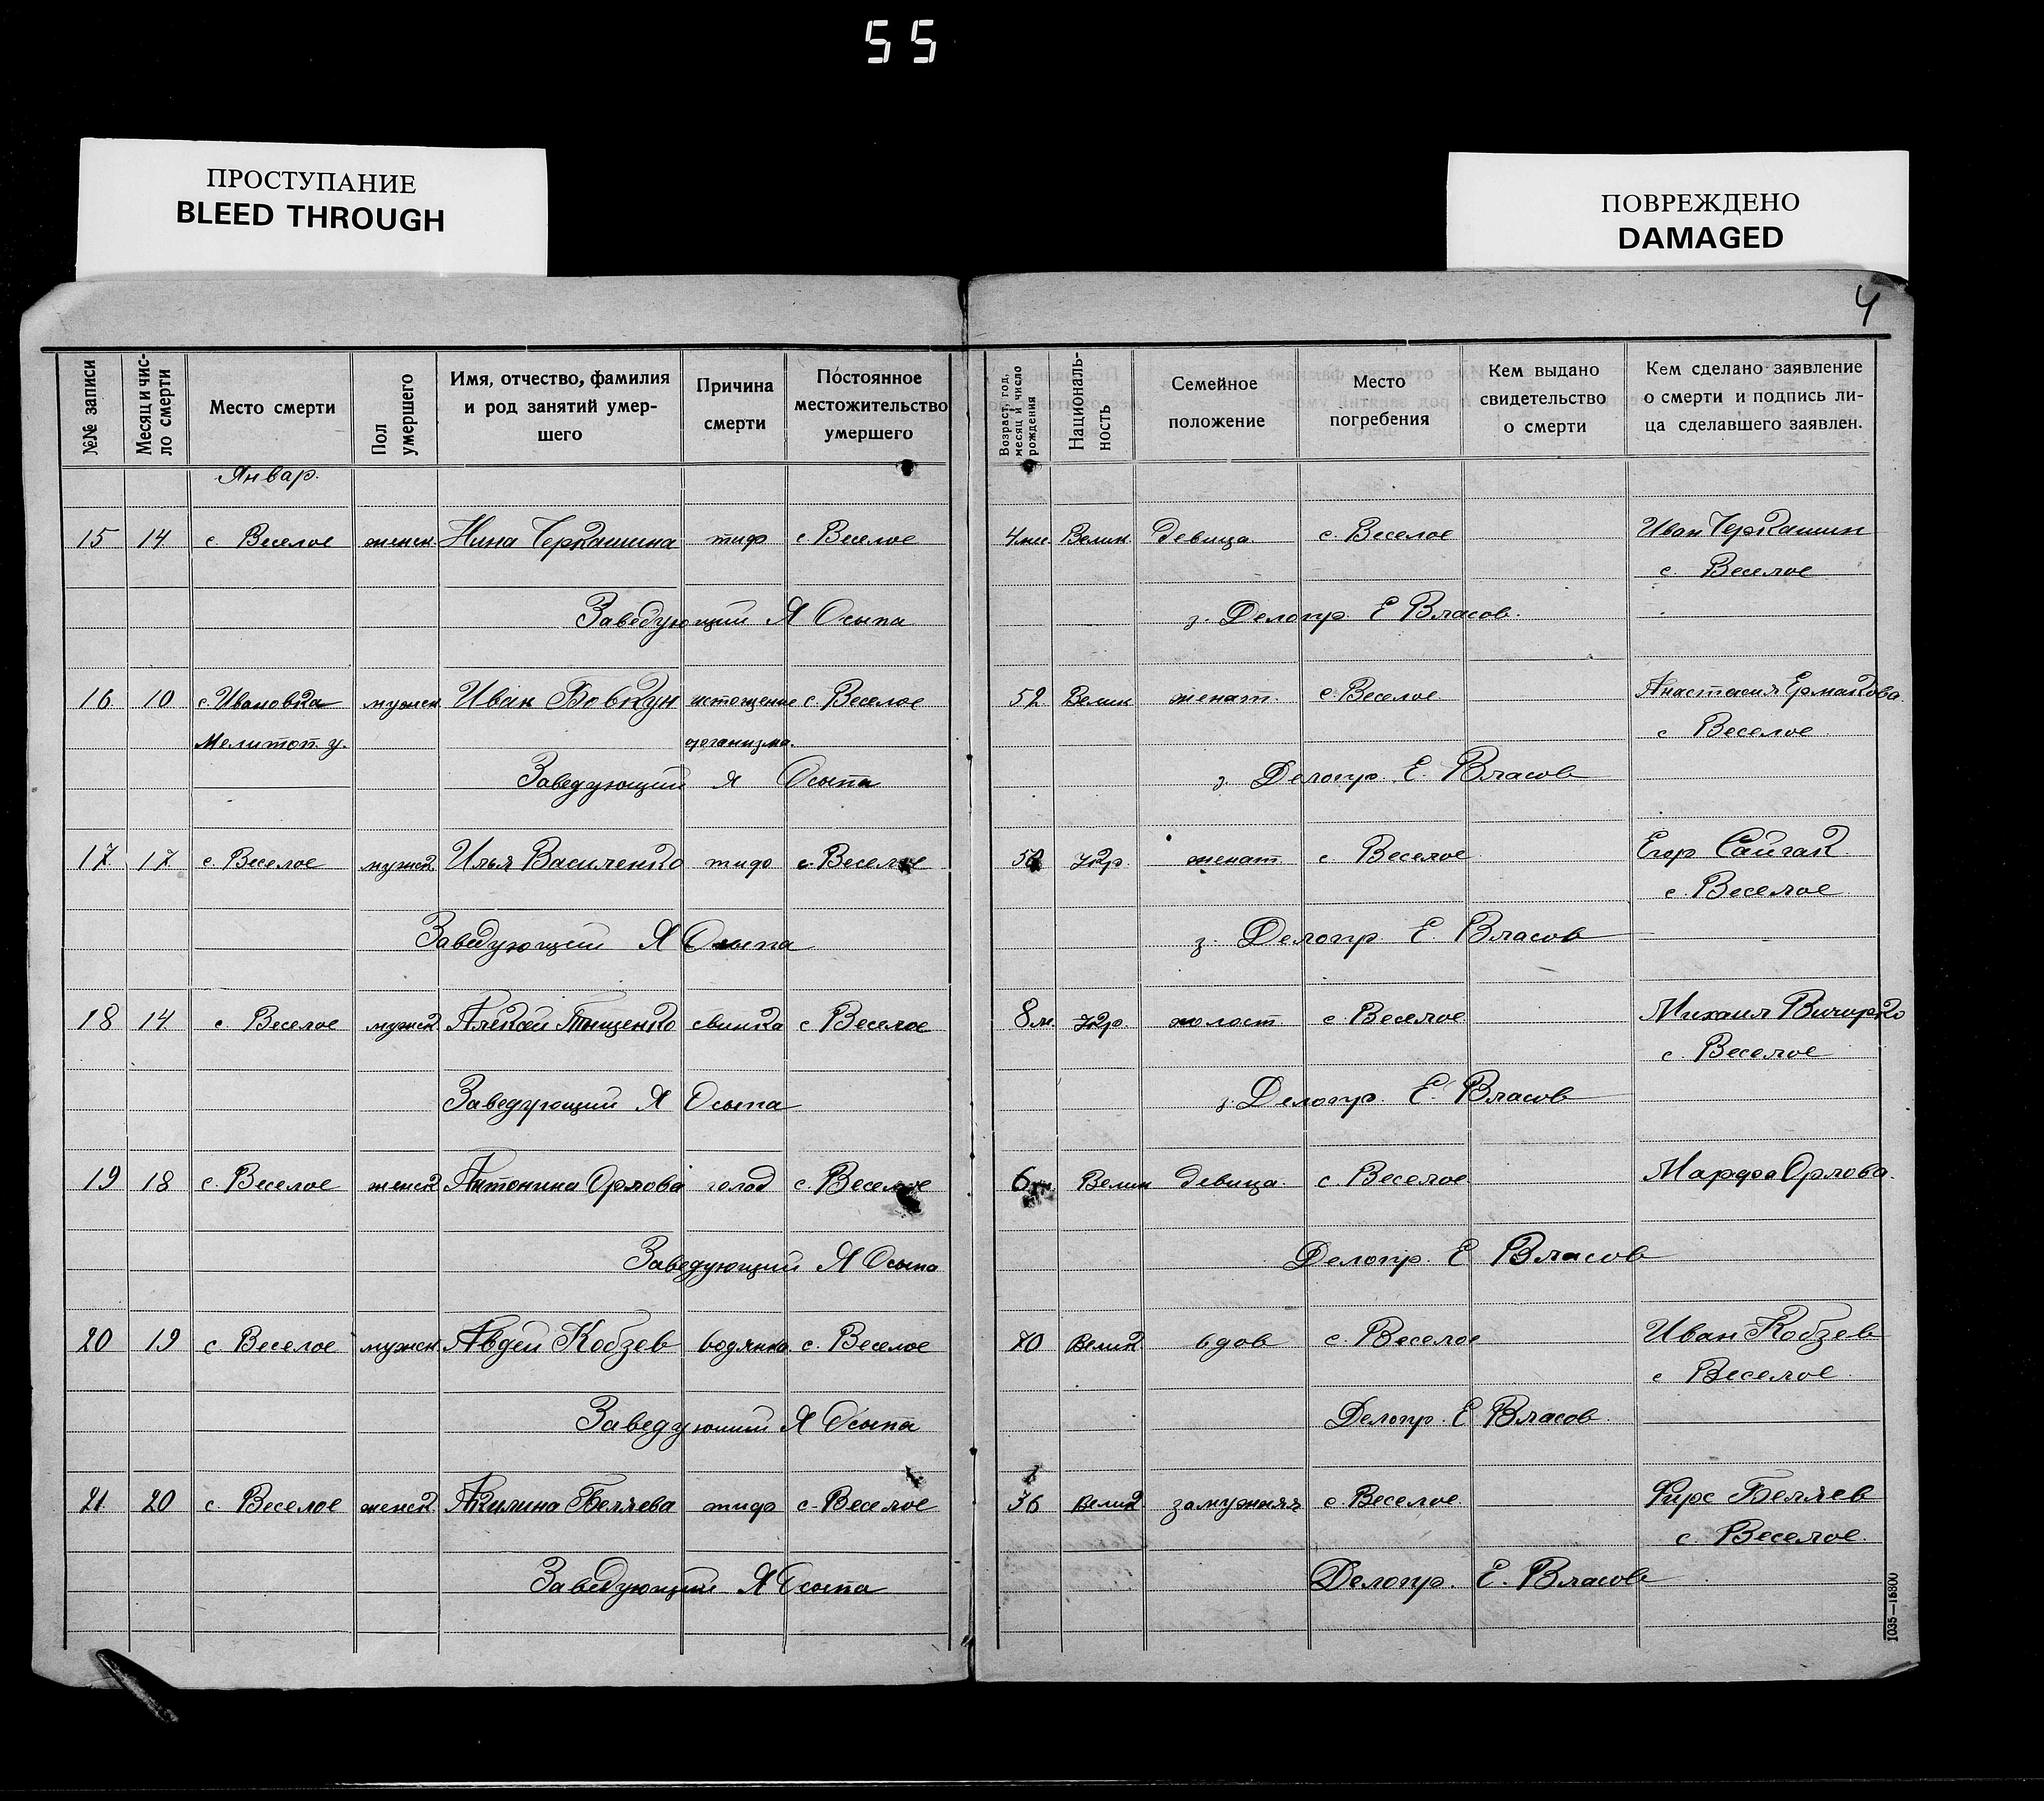 55
ПРОСТУПАНИЕ
BLEED THROUGH
ПОВРЕЖДЕНО
DAMAGED
4
№№ записи
Месяц и чис-
ло смерти
Место смерти
Пол
умершего
Имя, отчество, фамилия
и род занятий умер-
шего
Причина
смерти
Постоянное
местожительство
умершего
Возраст, год,
месяц и число
рождения
Националь-
ность
Семейное
положение
Место
погребения
Кем выдано
свидетельство
о смерти
Кем сделано заявление
о смерти и подпись ли-
ца сделавшего заявлен.
Январ.
15 14 с. Веселое женск. Нина Черкашина тиф с Веселое 4 Велик. девица с. Веселое Иван Черкашин
с. Веселое
Заведующий Я Осыпа з. Делопр. Е Власов.
16 10 с. Ивановка мужск. Иван Бовкун истощение с. Веселое 52 Велик женат. с. Веселое Анастасия Ермакова
Мелитоп. у. организма. с Веселое
Заведующий Я Осыпа з. Делопр. Е. Власов
17 17 с. Веселое мужск Илья Василенко тиф с. Веселое Укр. женат с. Веселое Егор Сайгак
с. Веселое
Заведующий Я Осыпа з. Делопр. Е. Власов
18 14 с. Веселое мужск Алексей Тищенко свинка с Веселое 8 м. Укр. холост с. Веселое Михаил
с. Веселое
Заведующий Я Осыпа з. Делопр. Е. Власов
19 18 с. Веселое женск Антонина Орлова голод с. Веселое 6 Велик девица с. Веселое Марфа Орлова.
Заведующий Я Осыпа Делопр. Е Власов
20 19 с Веселое мужск. Авдей Кобзев водянка с. Веселое 70 Велик вдов с. Веселое Иван Кобзев
с Веселое.
Заведующий Я Осыпа Делопр. Е Власов.
21 20 с Веселое женск. Акилина Беляева тиф с. Веселое 36 Велик замужняя с. Веселое Фирс Беляев
с. Веселое.
Заведующий Я Осыпа Делопр. Е. Власов
1035—15800